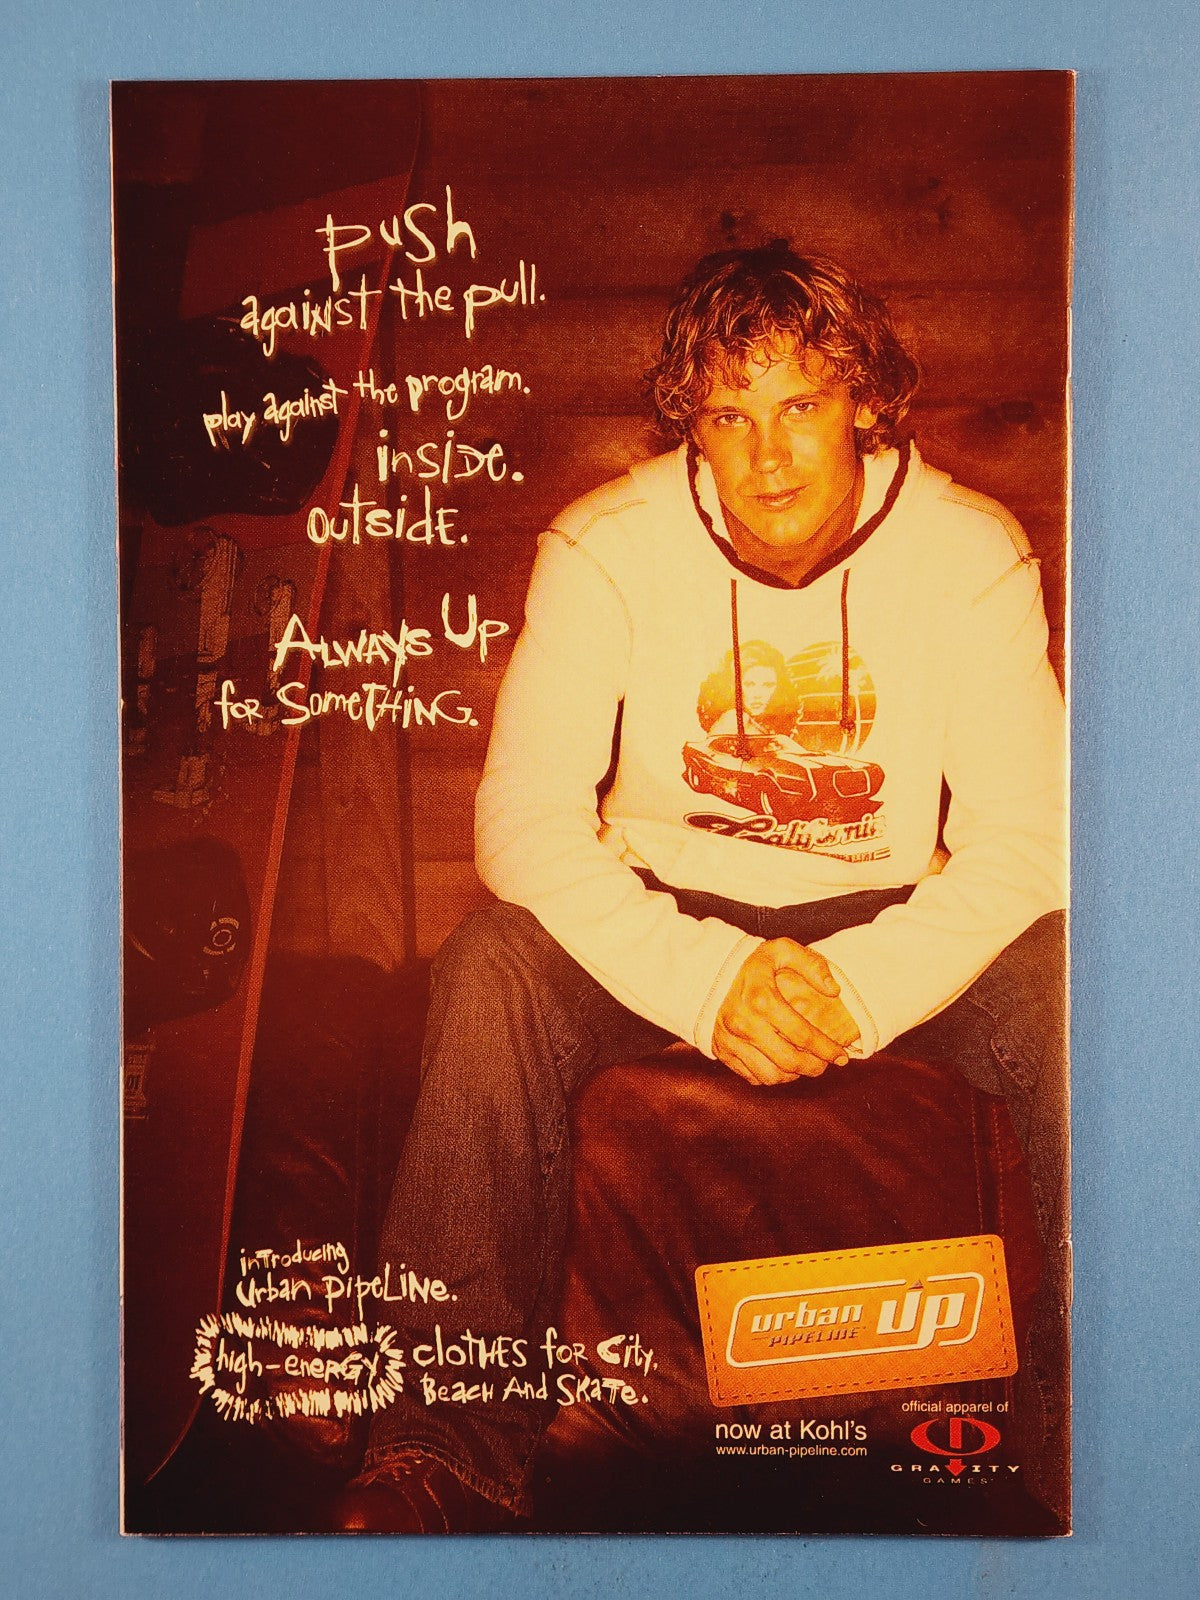 push
against the pull.
play against the program.
inside.
outside.
Always Up
for Something.
introducing
urban pipeline.
high-energy clothes for City,
Beach And Skate.
urban
PIPELINE
up
California
now at Kohl's
www.urban-pipeline.com
official apparel of
GRAVITY
GAMES